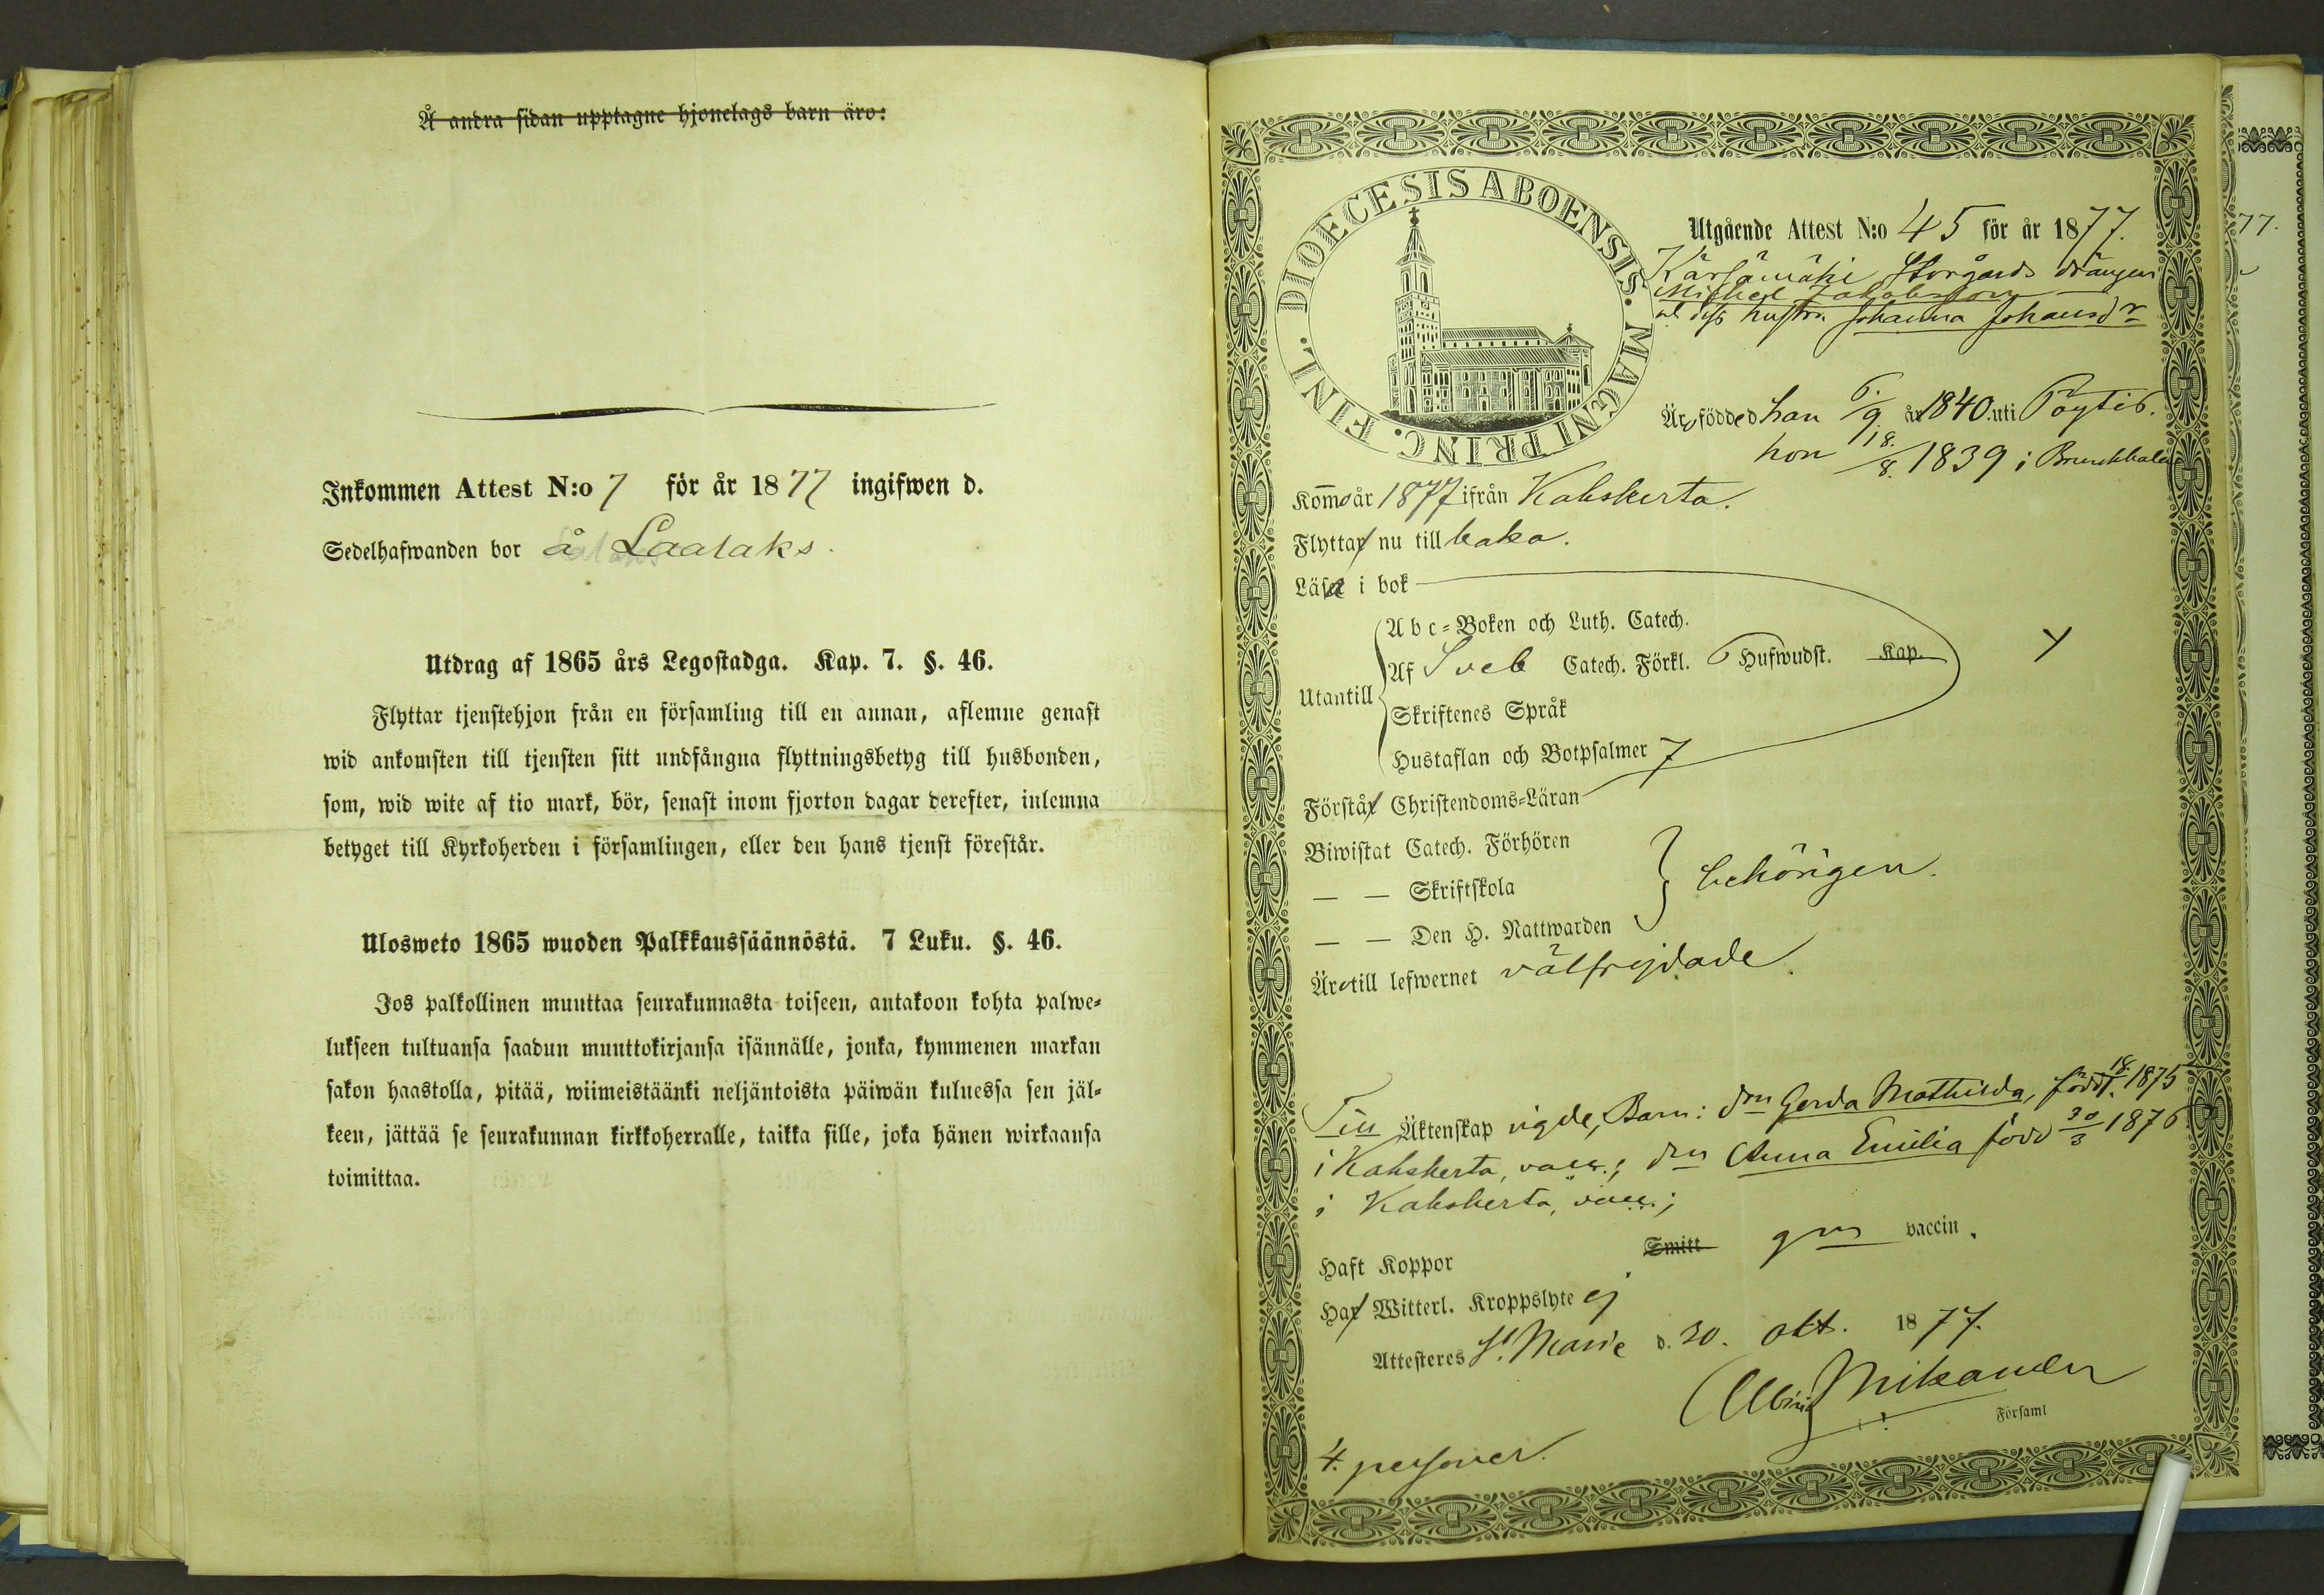 Å andra sidan upptagne hjonelags barn äro:
Inkommen Attest N:o 7 för år 1877 ingifwen d.
Sedelhafwanden bor å Laalaks.
Utdrag af 1865 års Legostadga. Kap. 7. §. 46.
Flyttar tjenstehjon från en församling till en annan, aflemne genast
wid ankomsten till tjensten sitt undfångna flyttningsbetyg till husbonden,
som, wid wite af tio mark, bör, senast inom fjorton dagar derefter, inlemna
betyget till Kyrkoherden i församlingen, eller den hans tjenst förestår.
Ulosweto 1865 wuoden Palkkaussäännöstä. 7 Luku. §. 46.
Jos palkollinen muuttaa seurakunnasta toiseen, antakoon kohta palwe-
lukseen tultuansa saadun muuttokirjansa isännälle, jonka, kymmenen markan
sakon haastolla, pitää, wiimeistäänki neljäntoista päiwän kuluessa sen jäl-
keen, jättää se seurakunnan kirkkoherralle, taikka sille, joka hänen wirkaansa
toimittaa.
DIOECESIS ABOENSIS. MAGNI PRINC. FINL.
Utgående Attest N:o 45 för år 1877.
Kärsämäki Storgårds drängen
Michel Jakobsson
o. dess hustru Johanna Johansdr
Äro födde d han 6/9 år 1840. uti Pöytis.
hon 18/8. 1839 i Brunkkala
Kom̄o år 1877 ifrån Kakskerta.
Flytta nu tillbaka.
Läsa i bok
Abc-Boken och Luth. Catech.
Utantill
Af Sveb Catech. Förkl. 6 Hufwudst. Kap.
Skriftenes Språk
Hustaflan och Botpsalmer 7
Förstå Christendoms-Läran
Biwistat Catech. Förhören
— — Skriftskola } behörigen.
— — Den H. Nattwarden
Äro till lefwernet välfrejdade.
Till Äktenskap vigde, Barn: dn Gerda Mathilda, född 18/1. 1875
i Kakskerta, vacc.; dn Anna Emilia född 30/3 1876
i Kakskerta, vacc.;
Haft Koppor Smitt gm vaccin.
Ha Witterl. Kroppslyte ej
Attesteres St. Marie d. 30. okt. 1877.
Albin Mikander
Församl
4. personer.
77.